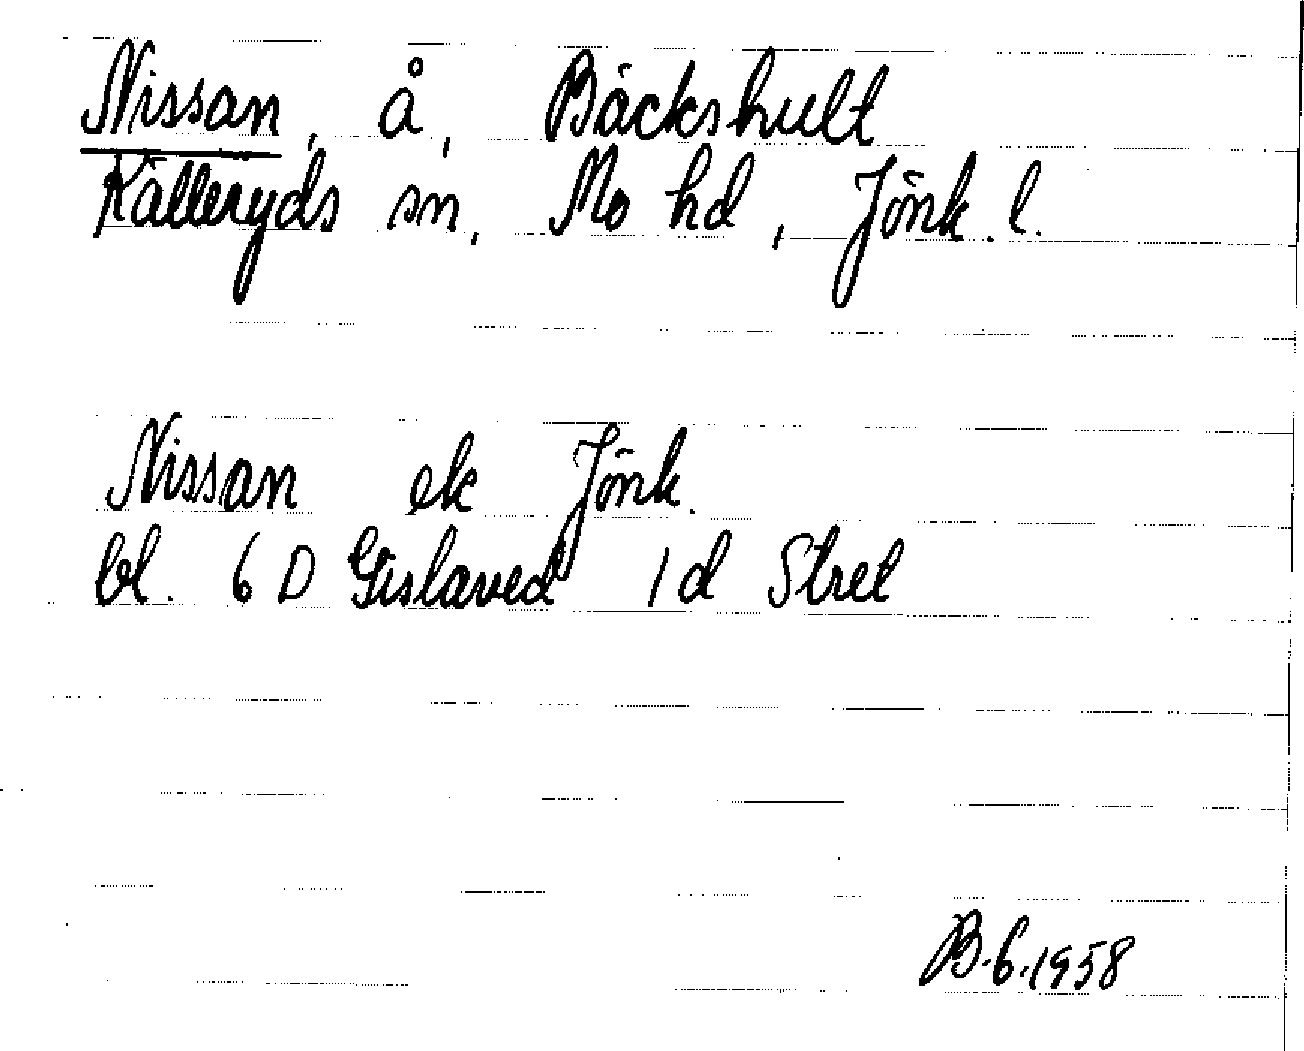 Nissan, å, Bäckshult
Källeryds sn, Mo hd, Jönk. l.
Nissan ek Jönk.
bl. 6 D Gislaved 1 d
B.6.1958